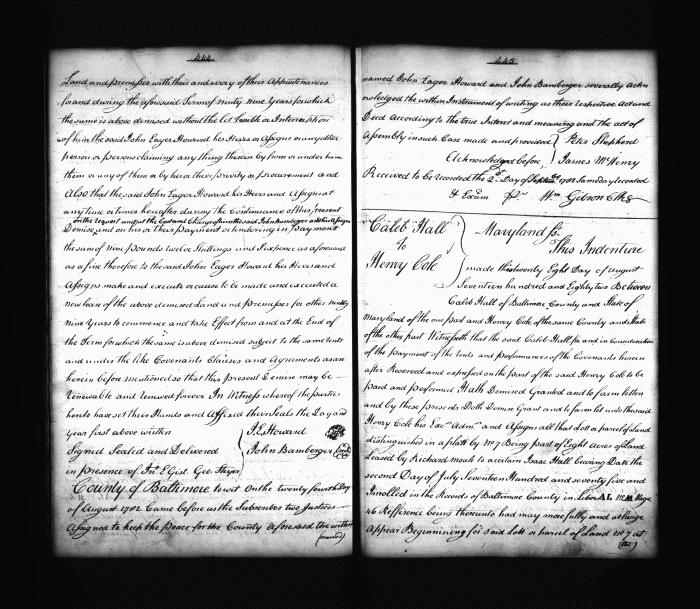 444
Land and premises with their and every of their Appurtenances
for and during the aforesaid Term of Ninty Nine Years for which
the same is above demised without the Let Trouble or Interruption
of him the said John Eager Howard his Heirs or Assigns or any other
person or persons claiming any thing therein by from or under him
them or any of them or by his or their privity or procurement and
Also that the said John Eager Howard his Heirs and Assigns at
any time or times hereafter during the Continuance of this present
on the request and at the Cost and Charge of him the said John Bamberger and his Assigns
Demise, and on his or their payment or tendering in payment
the sum of Nine pounds twelve Shillings and Sixpence as aforesaid
as a fine therefore to the said John Eager Howard his Heirs and
Assigns make and execute or cause to be made and executed a
new lease of the above demised Land and premisses for other Ninety
Nine Years to commence and take Effect from and at the End of
the Term for which the same is above demised subject to the same rents
and under the like Covenants Clauses and Agreements as are
herein before mentioned so that this present Demise may be
Renewable and renewed forever In Witness whereof the parties
hereto have set their Hands and Affixed their Seals the Day and
Year first above written J. E. Howard
Signed Sealed and Delivered John Bamberger
in presence of Geo:
County of Baltimore to wit On the twenty fourth Day
of August 1782 Came before us the Subscribers two Justices
Assigned to keep the Peace for the County aforesaid the within
(named)
445
named John Eager Howard and John Bamberger severally Ackn
owledged the within Instrument of writing as their respective Act and
Deed According to the true Intent and meaning and the act of
Assembly in such Case made and provided Peter Shepherd
Acknowledged before James McHenry
Received to be recorded the 2d Day of Septembr 1782 Same day recorded
& Exam pr Wm Gibson Clk
Caleb Hall
to
Henry Cole
Maryland sc.
This Indenture
made this twenty Eight Day of August
Seventeen hundred and Eighty two Between
Caleb Hall of Baltimore County and State of
Maryland of the one part and Henry Cole of the same County and State
of the other part Witnesseth that the said Caleb Hall for and in Consideration
of the payment of the rents and performances of the Covenants herein
after Reserved and expressed on the part of the said Henry Cole to be
paid and performed Hath Demised Granted and to farm letten
and by these presents Doth Demise Grant and to farm let unto the said
Henry Cole his Exrs Admrs and Assigns all that Lott or parcel of Land
distinguished in a platt by No 7 Being part of Eight Acres of Land
Leased by Richard Moale to a certain Isaac Hall bearing Date the
second Day of July Seventeen Hundred and seventy five and
Inrolled in the Records of Baltimore County in Liber AL
46 Refference being thereunto had may more fully and at large
Appear Beginning for said Lott or parcel of Land No 7 at
(the)